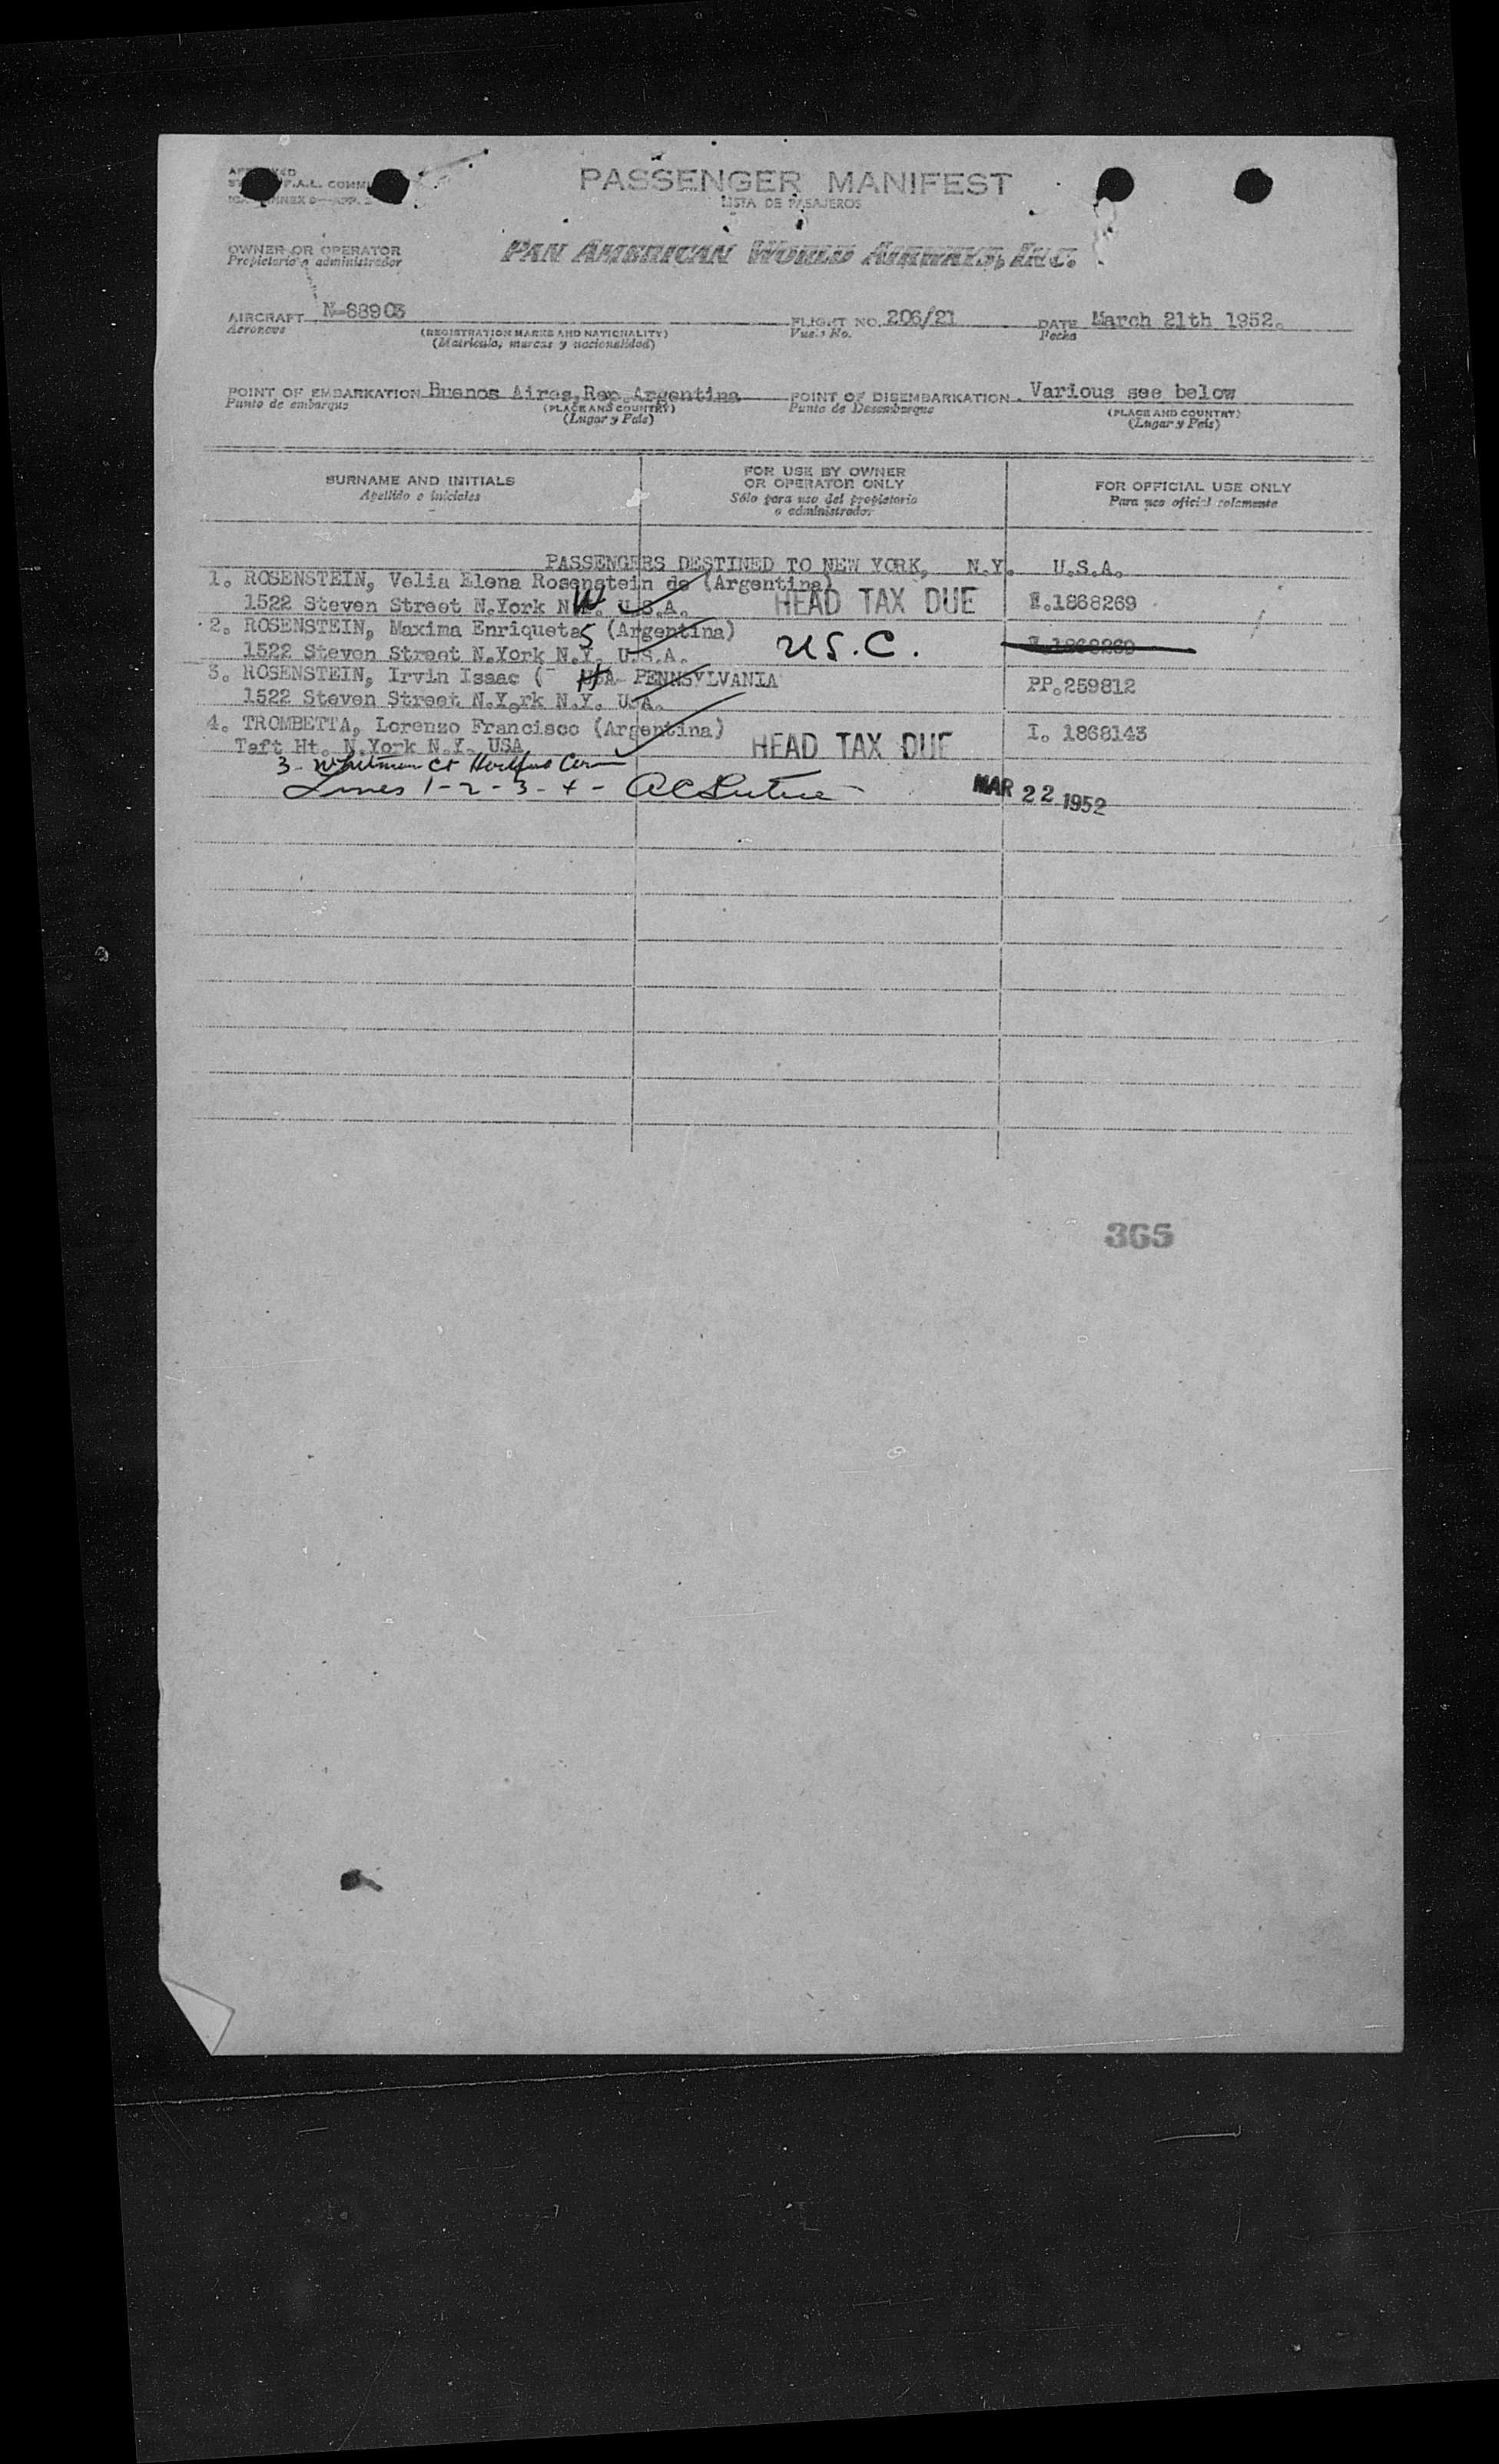 PASSENGER MANIFEST
LISTA DE PASAJEROS
OWNER OR OPERATOR
Propietario o administrador
PAN AMERICAN WORLD AIRWAYS, INC.
AIRCRAFT N-88903 FLIGHT NO. 206/21 DATE March 21th 1952.
Aeronave (REGISTRATION MARKS AND NATIONALITY) Vuelo No. Fecha
(Matrícula, marcas y nacionalidad)
POINT OF EMBARKATION Buenos Aires, Rep. Argentina POINT OF DISEMBARKATION Various see below
Punto de embarque (PLACE AND COUNTRY) Punto de Desembarque (PLACE AND COUNTRY)
(Lugar y País) (Lugar y País)
SURNAME AND INITIALS FOR USE BY OWNER OR OPERATOR ONLY FOR OFFICIAL USE ONLY
Apellido e iniciales Sólo para uso del propietario o administrador Para uso oficial solamente
PASSENGERS DESTINED TO NEW YORK, N.Y. U.S.A.
1. ROSENSTEIN, Velia Elena Rosenstein de (Argentina)
1522 Steven Street N.York N.Y. U.S.A. W HEAD TAX DUE 1868269
2. ROSENSTEIN, Maxima Enriqueta S (Argentina)
1522 Steven Street N.York N.Y. U.S.A. U.S.C. 1868269
3. ROSENSTEIN, Irvin Isaac ( USA- PENNSYLVANIA PP.259812
1522 Steven Street N.York N.Y. U.A.
4. TROMBETTA, Lorenzo Francisco (Argentina) I. 1868143
Taft Ht. N.York N.Y. USA HEAD TAX DUE
3- Whitman Ct Hartford
Lines 1-2-3-4- MAR 22 1952
365